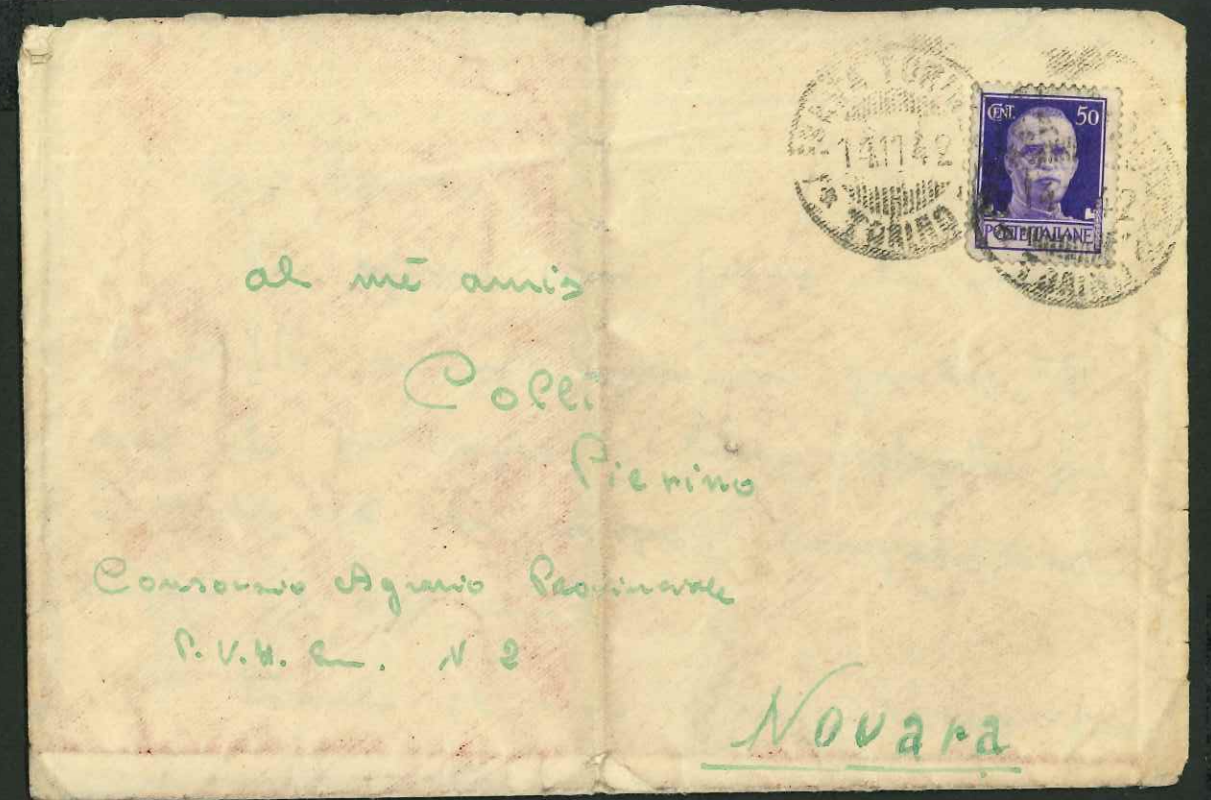 TORINO
14.11.42
CENT. 50
POSTE ITALIANE
al mē amis
Colli
Pierino
Consorzio Agrario Provinciale
P.V.H. N 2
Novara